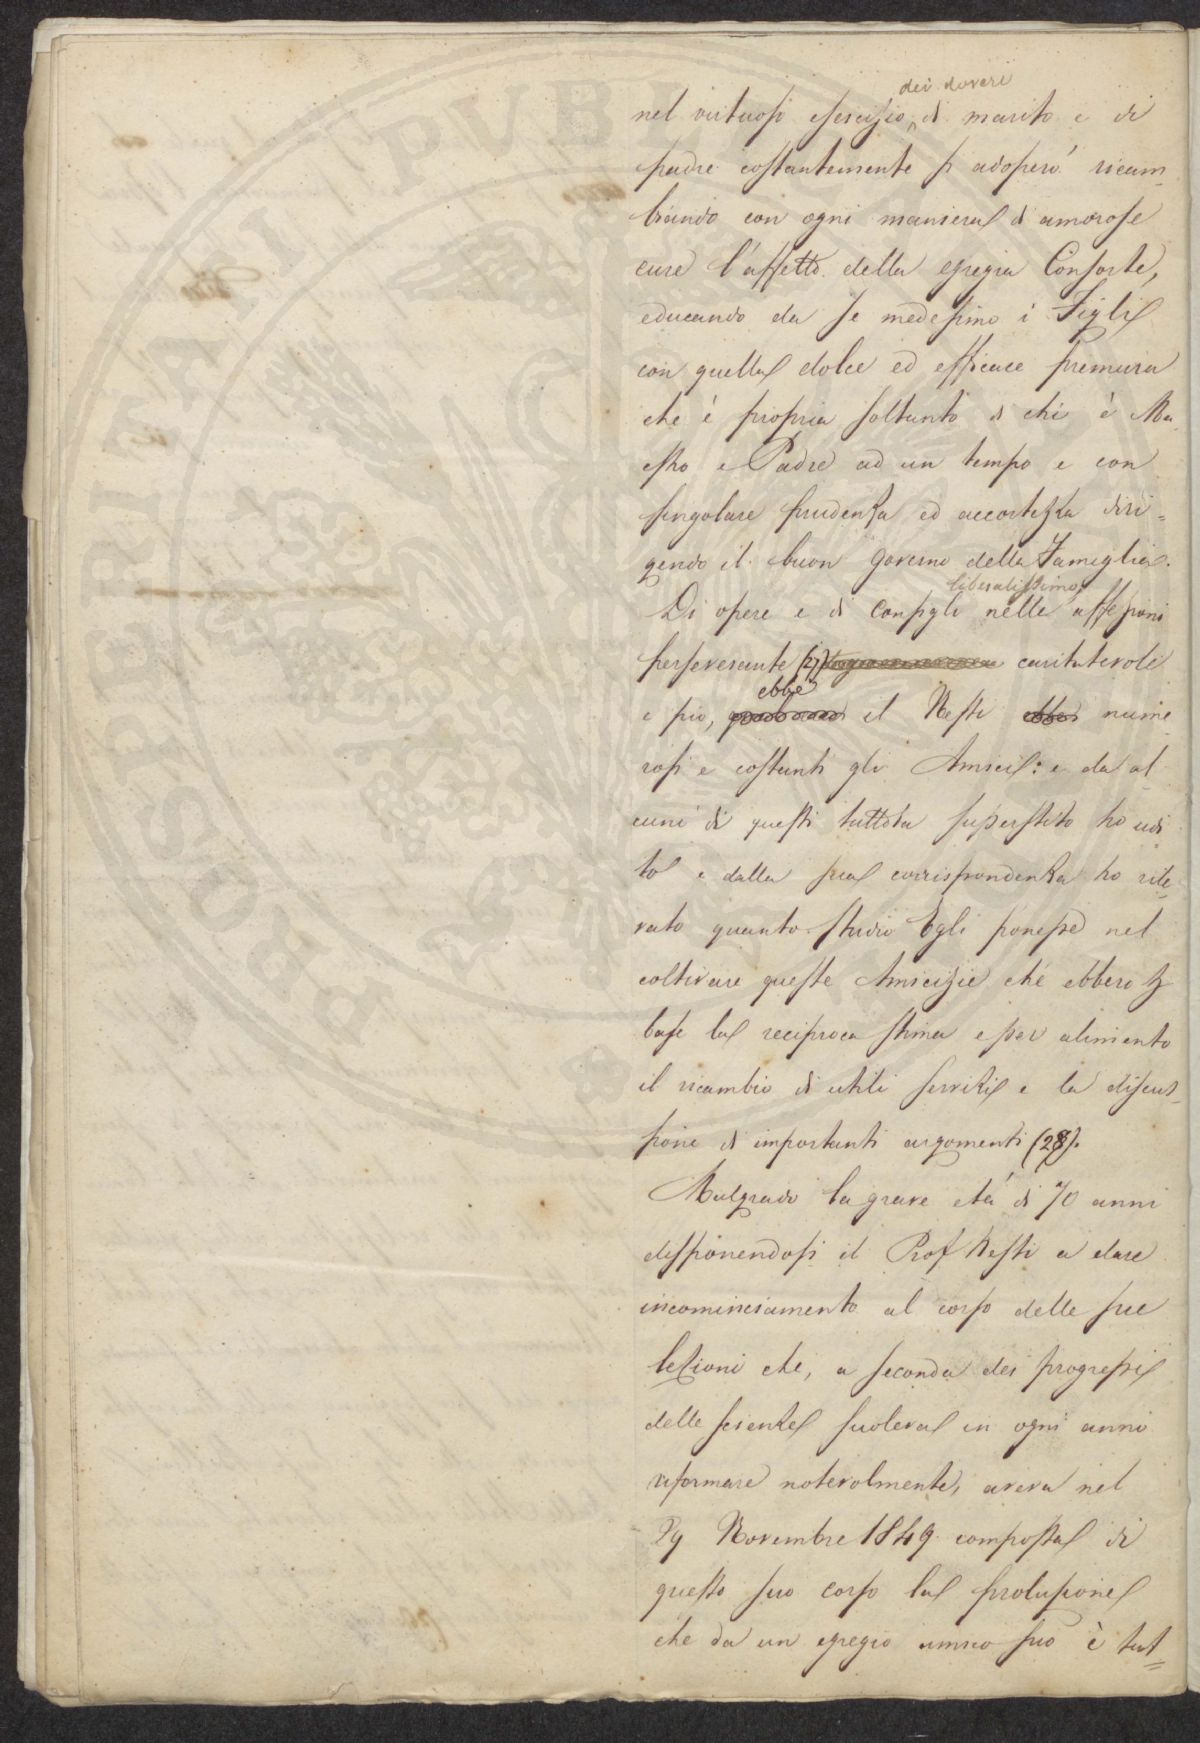 dei doveri
nel virtuosi esercizio di marito e di
padre costantemente si adoperò ricam-
biando con ogni maniera di amorose
cure l'affetto della egregia Consorte,
educando da se medesimo i Figli
con quella dolce ed efficace premura
che è propria soltanto di chi è Ma
estro e Padre ad un tempo e con
singolare prudenza ed accortezza diri=
gendo il buon governo della Famiglia.
liberalissimo
Di opere e di consigli nelle affezioni
perseverante (27) caritatevole
ebbe
e pio, il Nesti ebbe nume
rosi e costanti gli Amici: e da al
cuni di questi tuttora superstite ho udi
to e dalla sua corrispondenza ho rile-
vato quanto studio Egli ponesse nel
coltivare queste Amicizie che ebbero p
base la reciproca stima e per alimento
il ricambio di utili servizi e la discus-
sione di importanti argomenti (28).
Malgrado la grave età di 70 anni
disponendosi il Prof Nesti a dare
incominciamento al corso delle sue
lezioni che, a seconda dei progressi
delle scienze soleva in ogni anno
riformare notevolmente, aveva nel
29 Novembre 1849 composta di
questo suo corso la prolusione
che da un egregio amico suo è tut=